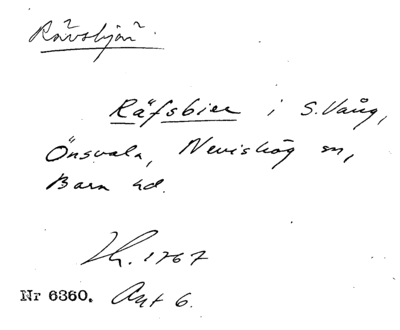 Rävsbjär
Räfsbier i S. Vång,
Önsvala, Nevishög sn,
Bara hd.
1767
Nr 6360. Akt 6.